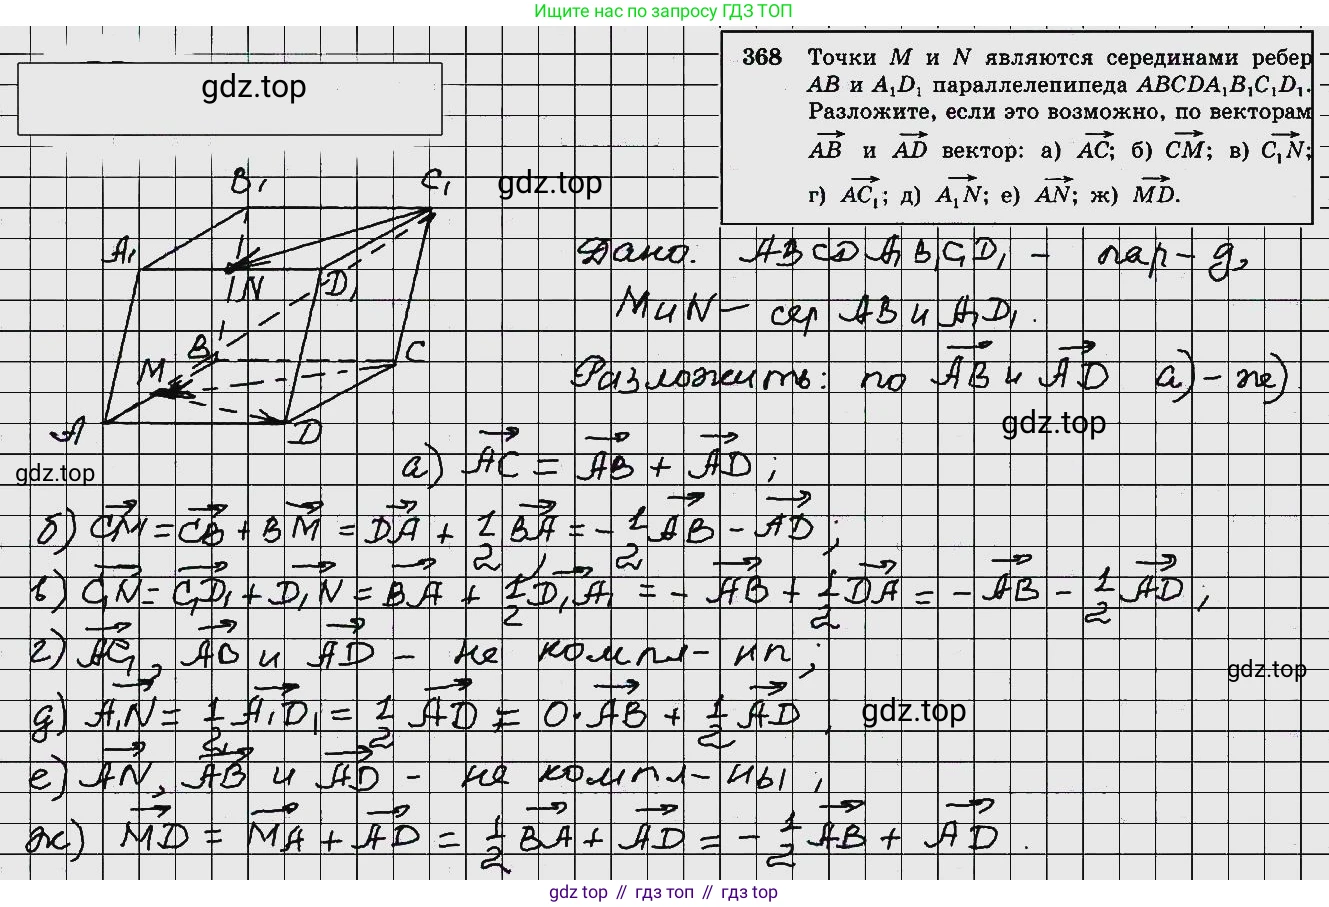 Ищите нас по запросу ГДЗ ТОП
gdz.top
368 Точки M и N являются серединами ребер
AB и A₁D₁ параллелепипеда ABCDA₁B₁C₁D₁.
Разложите, если это возможно, по векторам
AB⃗ и AD⃗ вектор: а) AC⃗; б) CM⃗; в) C₁N⃗;
г) AC₁⃗; д) A₁N⃗; е) AN⃗; ж) MD⃗.
gdz.top
B₁ C₁
A₁ N D₁
M B C
A D
Дано: ABCDA₁B₁C₁D₁ – пар-д,
M и N – сер AB и A₁D₁.
Разложить: по AB⃗ и AD⃗ а) – же)
gdz.top
gdz.top
а) AC⃗ = AB⃗ + AD⃗;
б) CM⃗ = CB⃗ + BM⃗ = DA⃗ + 1/2 BA⃗ = – 1/2 AB⃗ – AD⃗;
в) C₁N⃗ = C₁D₁⃗ + D₁N⃗ = BA⃗ + 1/2 D₁A₁⃗ = – AB⃗ + 1/2 DA⃗ = – AB⃗ – 1/2 AD⃗;
г) AC₁⃗, AB⃗ и AD⃗ – не компл-ны;
gdz.top
д) A₁N⃗ = 1/2 A₁D₁⃗ = 1/2 AD⃗ = 0·AB⃗ + 1/2 AD⃗,
gdz.top
е) AN⃗, AB⃗ и AD⃗ – не компл-ны,
ж) MD⃗ = MA⃗ + AD⃗ = 1/2 BA⃗ + AD⃗ = – 1/2 AB⃗ + AD⃗.
gdz top // гдз топ // гдз top